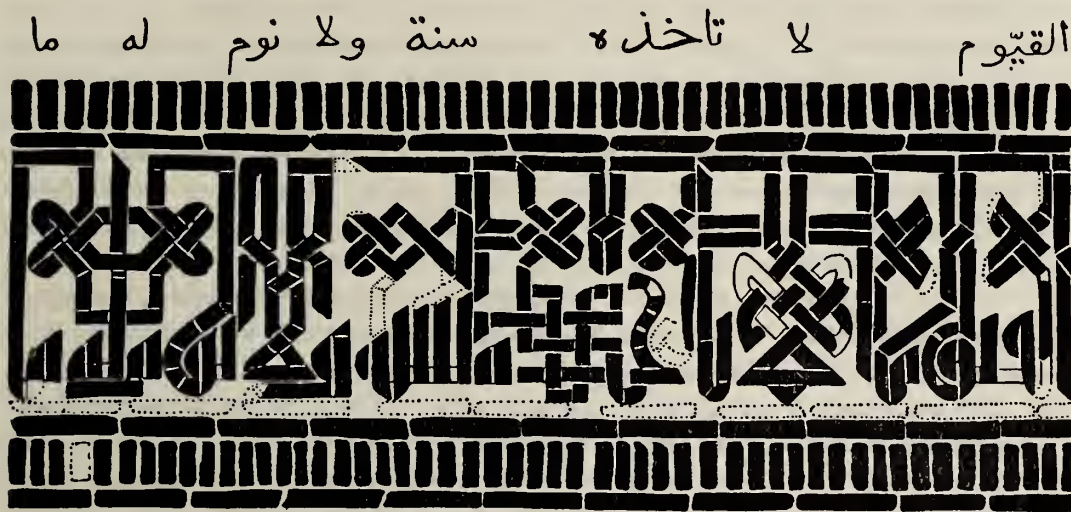 القيّوم لا تاخذه سنة ولا نوم له ما